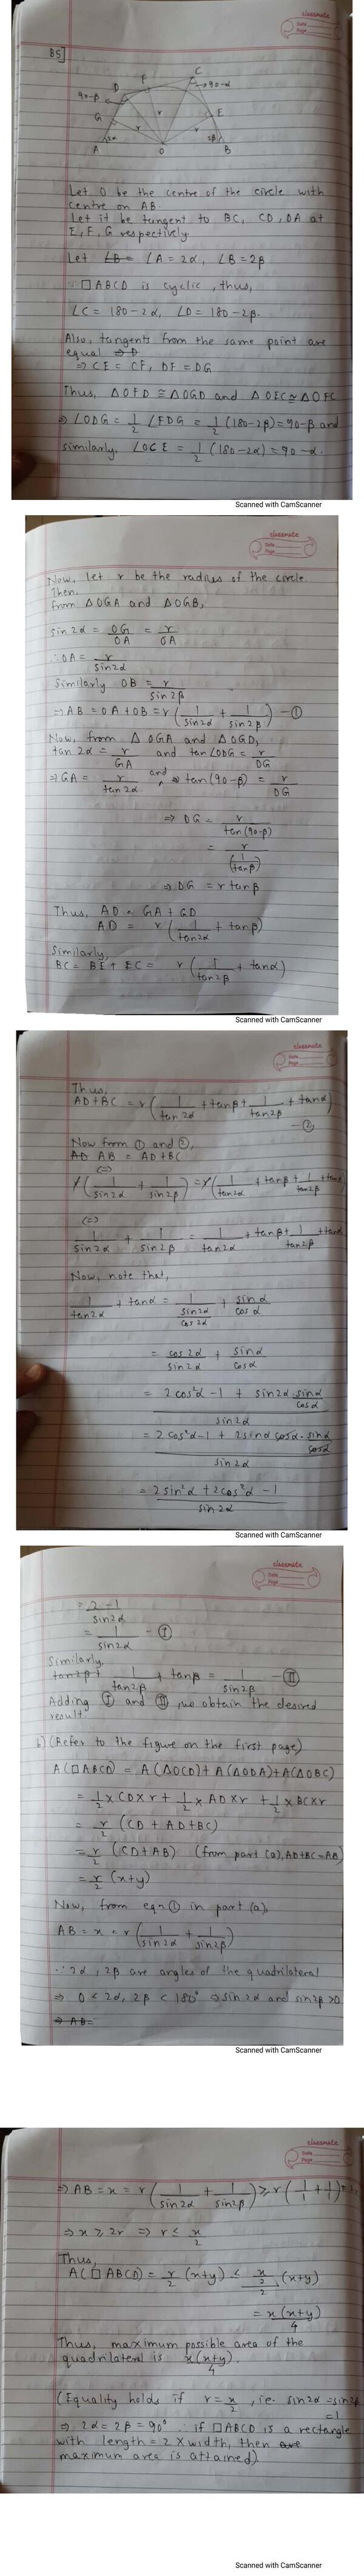 classmate
Date
Page
B5]
C
F
D
90-α
90-β
G
E
r
r
r
2α
2β
A
O
B
Let O be the centre of the circle with
centre on AB.
Let it be tangent to BC, CD, DA at
E, F, G respectively.
Let ∠B= ∠A = 2α, ∠B = 2β
∵ □ABCD is cyclic, thus,
∠C = 180-2α, ∠D = 180-2β.
Also, tangents from the same point are
equal ⇒ D
⇒ CE = CF, DF = DG
Thus, △OFD ≅ △OGD and △OEC ≅ △OFC
⇒ ∠ODG = 1/2 ∠FDG = 1/2 (180-2β) = 90-β and
similarly, ∠OCE = 1/2 (180-2α) = 90-α.
Scanned with CamScanner
classmate
Date
Page
Now, let r be the radius of the circle
Then,
from △OGA and △OGB,
sin 2α = OG/OA = r/OA
∴ OA = r/sin2α
Similarly OB = r/sin2β
⇒ AB = OA + OB = r(1/sin2α + 1/sin2β) - ①
Now, from △OGA and △OGD,
tan 2α = r/GA and tan∠ODG = r/DG
⇒ GA = r/tan2α and ⇒ tan(90-β) = r/DG
⇒ DG = r/tan(90-β)
= r/(1/tanβ)
⇒ DG = r tanβ
Thus, AD = GA + GD
AD = r(1/tan2α + tanβ)
Similarly,
BC = BE + EC = r(1/tan2β + tanα)
Scanned with CamScanner
classmate
Date
Page
Thus,
AD+BC = r(1/tan2α + tanβ + 1/tan2β + tanα)
- ②
Now from ① and ②,
AD AB = AD+BC
(⇔)
r(1/sin2α + 1/sin2β) = r(1/tan2α + tanβ + 1/tan2β + tanα)
(⇔)
1/sin2α + 1/sin2β = 1/tan2α + tanβ + 1/tan2β + tanα
Now, note that,
1/tan2α + tanα = 1/(sin2α/cos2α) + sinα/cosα
= cos2α/sin2α + sinα/cosα
= (2cos²α - 1 + sin2α · sinα/cosα)/sin2α
= (2cos²α - 1 + 2sinα cosα · sinα/cosα)/sin2α
= (2sin²α + 2cos²α - 1)/sin2α
Scanned with CamScanner
classmate
Date
Page
= (2-1)/sin2α
= 1/sin2α - Ⓘ
Similarly,
tan2β + 1/tan2β + tanβ = 1/sin2β - Ⅱ
Adding Ⓘ and Ⅱ, we obtain the desired
result.
b) (Refer to the figure on the first page)
A(□ABCD) = A(△OCD) + A(△ODA) + A(△OBC)
= 1/2 × CD × r + 1/2 × AD × r + 1/2 × BC × r
= r/2 (CD + AD + BC)
= r/2 (CD + AB) (from part (a), AD+BC=AB)
= r/2 (x+y)
Now, from eqn ① in part (a),
AB = x = r(1/sin2α + 1/sin2β)
∵ 2α, 2β are angles of the quadrilateral
⇒ 0 < 2α, 2β < 180° ⇒ sin2α and sin2β >0
⇒ AB=
Scanned with CamScanner
classmate
Date
Page
⇒ AB = x = r(1/sin2α + 1/sin2β) ≥ r(1/1 + 1/1) =
⇒ x ≥ 2r ⇒ r ≤ x/2
Thus,
A(□ABCD) = r/2 (x+y) ≤ (x/2)/2 (x+y)
= x(x+y)/4
Thus, maximum possible area of the
quadrilateral is x(x+y)/4.
(Equality holds if r = x/2, i.e. sin2α = sin2β
= 1
⇒ 2α = 2β = 90° ∴ if □ABCD is a rectangle
with length = 2 × width, then are
maximum area is attained).
Scanned with CamScanner